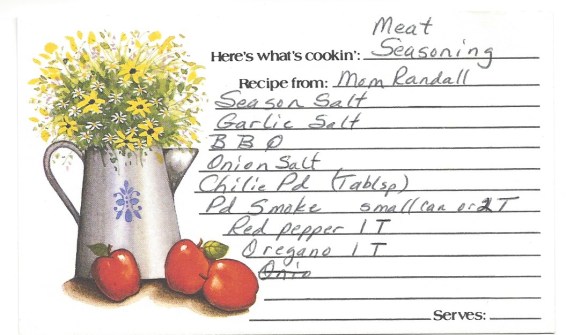 Meat
Here's what's cookin': Seasoning
Recipe from: Mom Randall
Season Salt
Garlic Salt
B B Q
Onion Salt
Chilie Pd (Tablsp)
Pd Smoke small can or 2 T
Red pepper 1 T
Oregano 1 T
Onio
Serves: